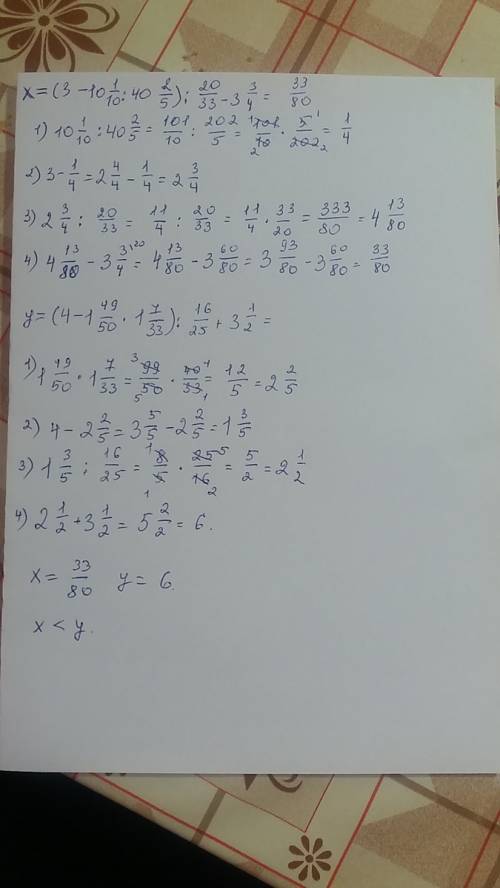 x = (3 - 10 1/10 : 40 2/5) : 20/33 - 3 3/4 = 33/80
1) 10 1/10 : 40 2/5 = 101/10 : 202/5 = 101/10 · 5/202 = 1/4
2) 3 - 1/4 = 2 4/4 - 1/4 = 2 3/4
3) 2 3/4 : 20/33 = 11/4 : 20/33 = 11/4 · 33/20 = 333/80 = 4 13/80
4) 4 13/80 - 3 3/4 = 4 13/80 - 3 60/80 = 3 93/80 - 3 60/80 = 33/80
y = (4 - 1 49/50 · 1 7/33) : 16/25 + 3 1/2 =
1) 1 49/50 · 1 7/33 = 99/50 · 40/33 = 12/5 = 2 2/5
2) 4 - 2 2/5 = 3 5/5 - 2 2/5 = 1 3/5
3) 1 3/5 : 16/25 = 8/5 · 25/16 = 5/2 = 2 1/2
4) 2 1/2 + 3 1/2 = 5 2/2 = 6.
x = 33/80 y = 6.
x < y.